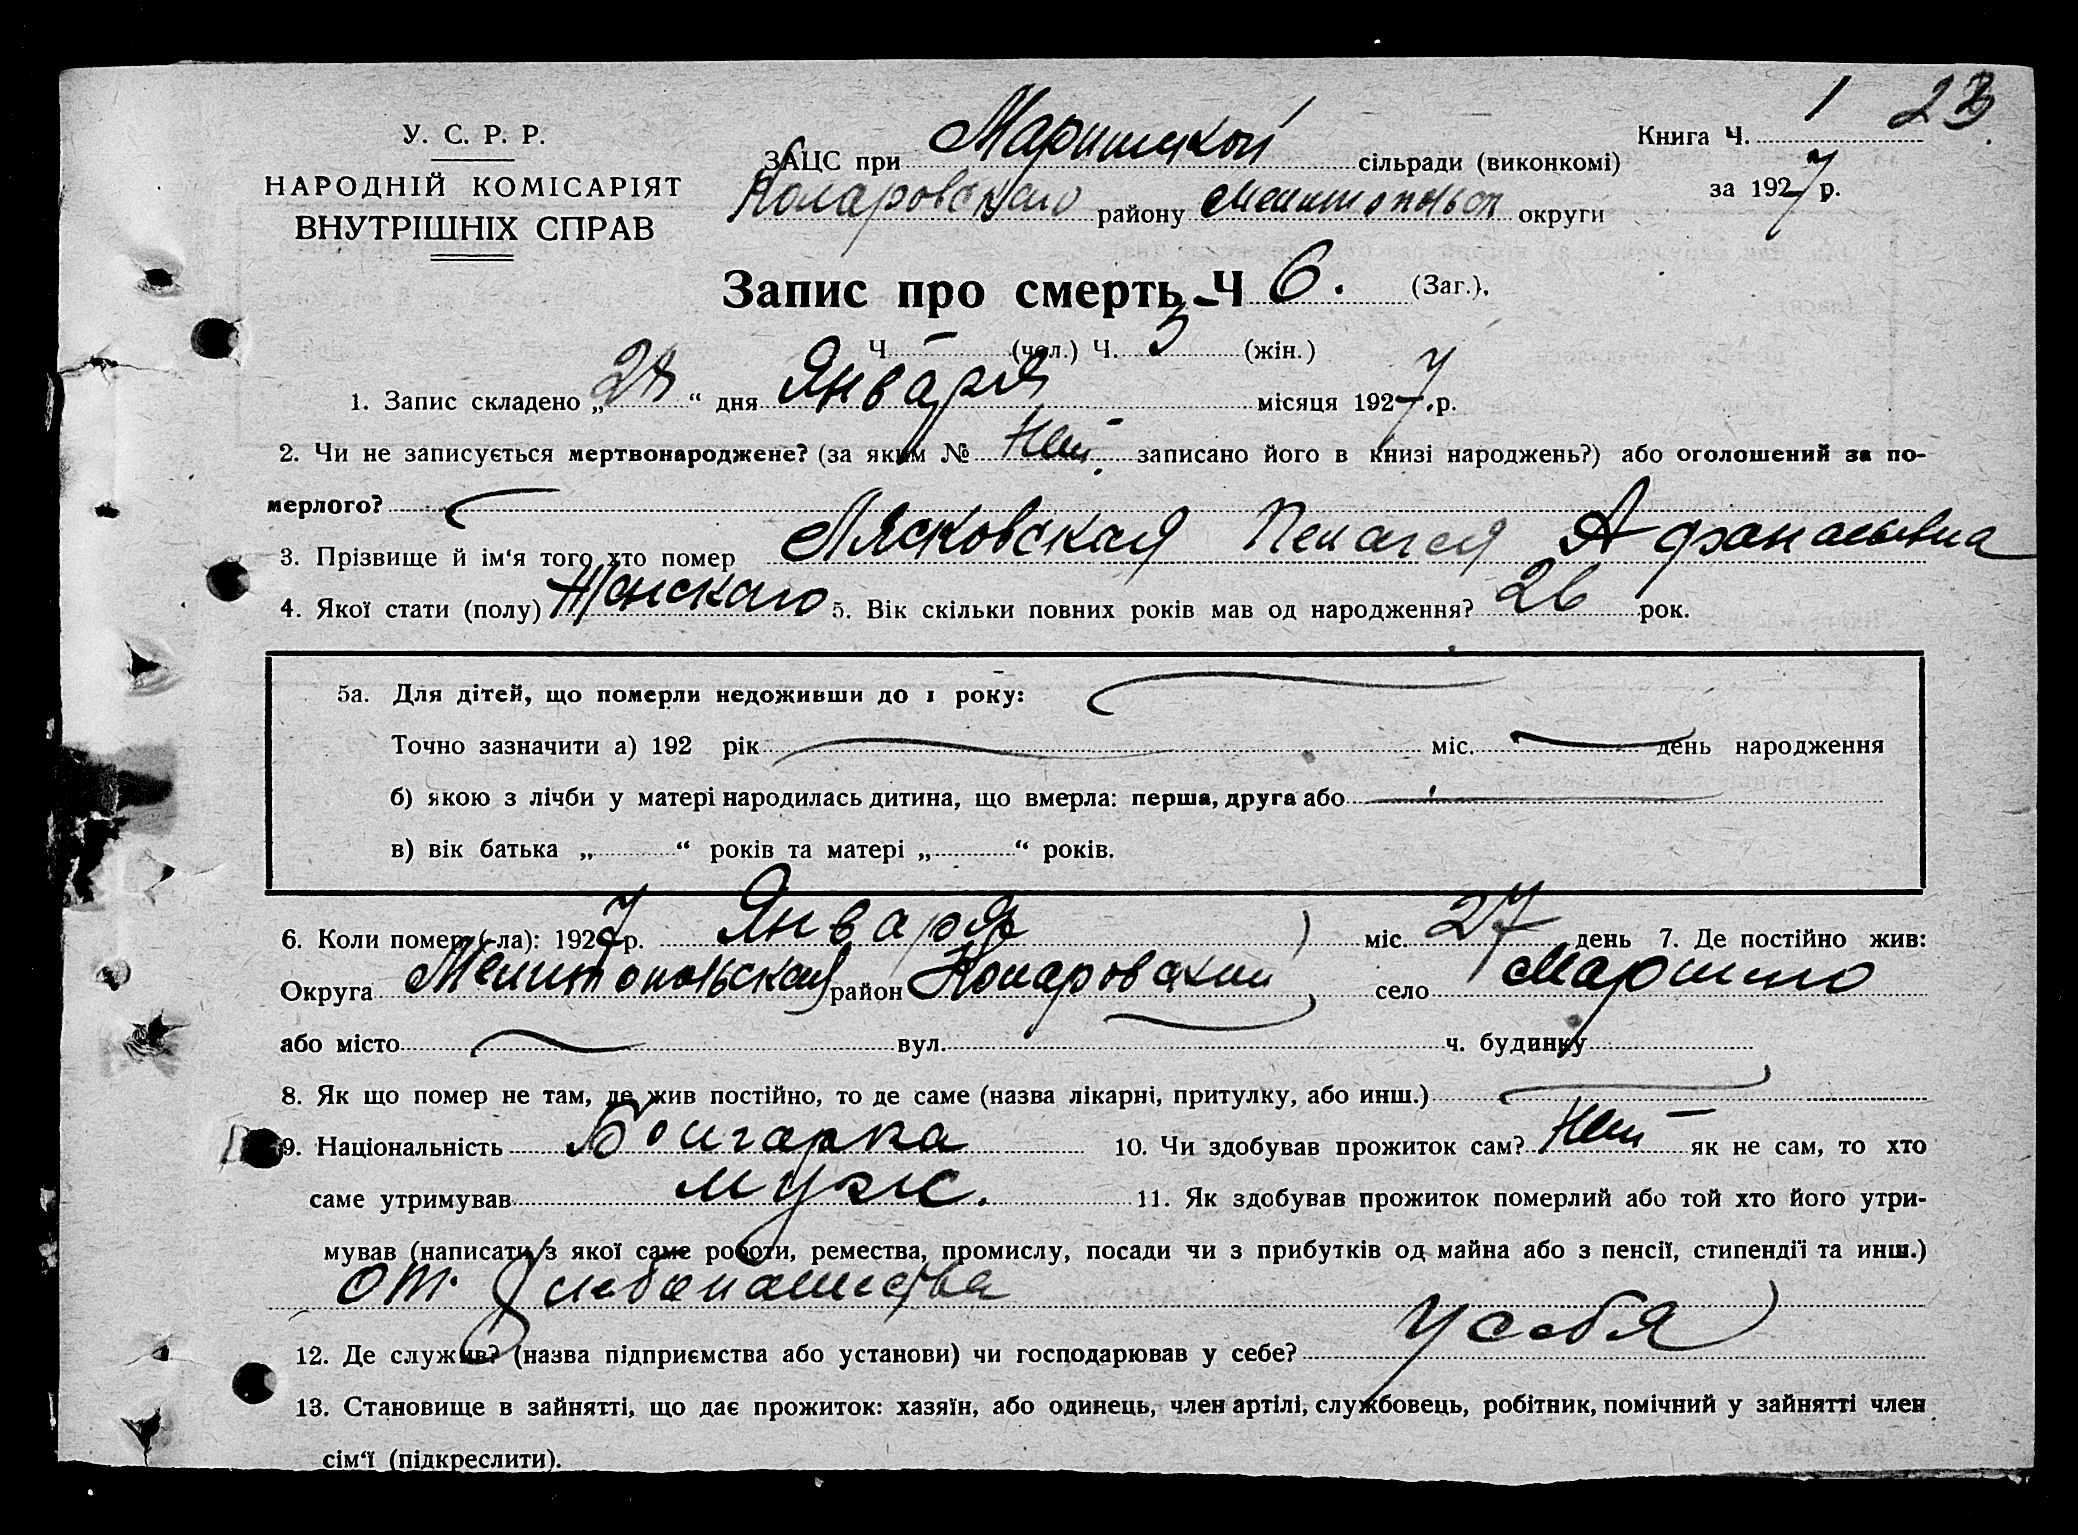 У. С. Р. Р.
НАРОДНІЙ КОМІСАРІЯТ
ВНУТРІШНІХ СПРАВ
Книга Ч. 1 23
за 1927 р.
ЗАЦС при Маринской сільради (виконкомі)
Коларовского району Мелитопольск округи
Запис про смерть Ч 6. (Заг.).
Ч. – (чол.) Ч. 3 (жін.)
1. Запис складено „28“ дня Января місяця 1927.р.
2. Чи не записується мертвонароджене? (за яким № Нет. записано його в книзі народжень?) або оголошений за по-
мерлого?
3. Прізвище й ім‘я того хто помер Лясковская Пелагея Афанасьевна
4. Якої стати (полу) Женскаго 5. Вік скільки повних років мав од народження? 26 рок.
5а. Для дітей, що померли недоживши до 1 року:
Точно зазначити а) 192 рік міс. день народження
б) якою з лічби у матері народилась дитина, що вмерла: перша, друга або
в) вік батька „ “ років та матері „ “ років.
6. Коли помер (-ла): 1927 р. Января міс. 27 день 7. Де постійно жив:
Округа Мелитопольская район Коларовский село Марино
або місто вул. ч. будинку
8. Як що помер не там, де жив постійно, то де саме (назва лікарні, притулку, або инш.)
9. Національність Болгарка 10. Чи здобував прожиток сам? Нет як не сам, то хто
саме утримував муж. 11. Як здобував прожиток померлий або той хто його утри-
мував (написати з якої саме роботи, ремества, промислу, посади чи з прибутків од майна або з пенсії, стипендії та инш.)
от хлебопашества
12. Де служив? (назва підприємства або установи) чи господарював у себе? у себя
13. Становище в зайнятті, що дає прожиток: хазяїн, або одинець, член артілі, службовець, робітник, помічний у зайнятті член
сім‘ї (підкреслити).